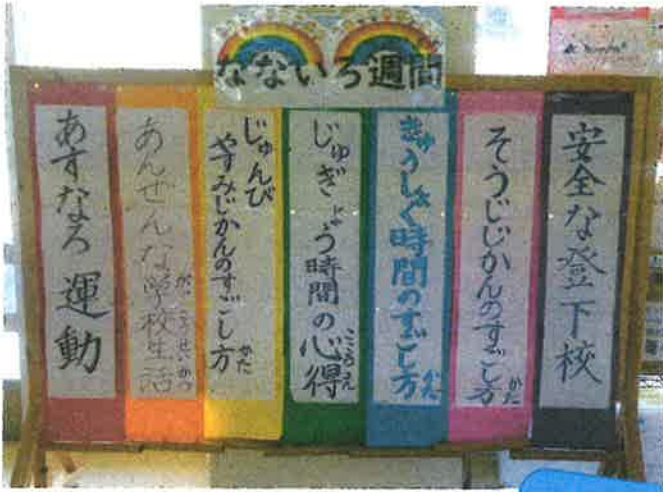 なないろ週間
安全な登下校
そうじじかんのすごし方
かた
きゅうしょく時間のすごし方
かた
じゅぎょう時間の心得
こころえ
じゅんび
やすみじかんのすごし方
かた
あんぜんな学校生活
がっこうせいかつ
あすなろ運動